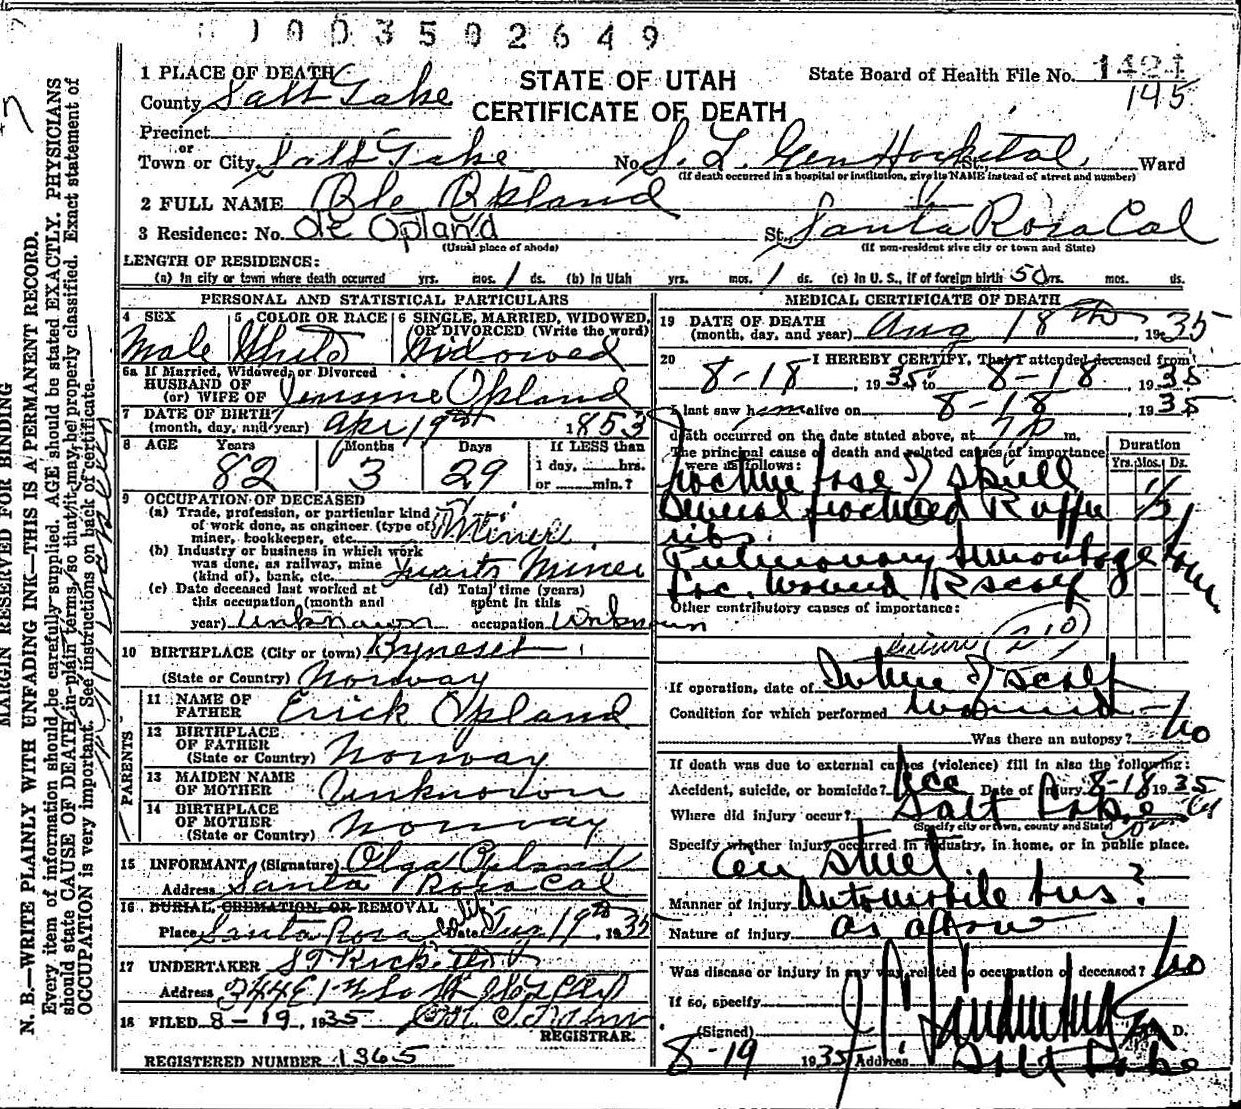 1003502649
1 PLACE OF DEATH
STATE OF UTAH
CERTIFICATE OF DEATH
State Board of Health File No. 1424
145
County Salt Lake
Precinct
or
Town or City Salt Lake No. S. L. Gen Hospital St. Ward
(If death occurred in a hospital or institution, give its NAME instead of street and number)
2 FULL NAME Ole Opland
3 Residence: No. Ole Opland St. Santa Rosa Cal
(Usual place of abode) (If non-resident give city or town and State)
LENGTH OF RESIDENCE:
(a) In city or town where death occurred yrs. mos. 1 ds. (b) In Utah yrs. mos. 1 ds. (c) In U. S., if of foreign birth 50 yrs. mos. ds.
PERSONAL AND STATISTICAL PARTICULARS
4 SEX Male
5 COLOR OR RACE White
6 SINGLE, MARRIED, WIDOWED, OR DIVORCED (Write the word) Widowed
6a If Married, Widowed, or Divorced
HUSBAND OF
(or) WIFE OF Opland
7 DATE OF BIRTH
(month, day, and year) Apr 19th 1853
8 AGE Years 82 Months 3 Days 29 If LESS than
1 day, hrs.
or min.?
9 OCCUPATION OF DECEASED
(a) Trade, profession, or particular kind
of work done, as engineer (type of)
miner, bookkeeper, etc. Miner
(b) Industry or business in which work
was done, as railway, mine
(kind of), bank, etc. Quarts Miner
(c) Date deceased last worked at
this occupation (month and
year) Unknown
(d) Total time (years)
spent in this
occupation Unknown
10 BIRTHPLACE (City or town) Byneset
(State or Country) Norway
PARENTS
11 NAME OF
FATHER Erick Opland
12 BIRTHPLACE
OF FATHER
(State or Country) Norway
13 MAIDEN NAME
OF MOTHER Unknown
14 BIRTHPLACE
OF MOTHER
(State or Country) Norway
15 INFORMANT (Signature) Olga Opland
Address Santa Rosa Cal
16 BURIAL, CREMATION, OR REMOVAL
Place Santa Rosa Calif. Date Aug 19th, 1935
17 UNDERTAKER
Address
18 FILED 8-19, 1935
REGISTRAR.
REGISTERED NUMBER 1365
MEDICAL CERTIFICATE OF DEATH
19 DATE OF DEATH
(month, day, and year) Aug 18th, 1935
20 I HEREBY CERTIFY, That I attended deceased from
8-18, 1935 to 8-18, 1935
I last saw him alive on 8-18, 1935
death occurred on the date stated above, at m.
The principal cause of death and related causes of importance
were as follows:
Duration
Yrs. Mos. Ds.
Fracture base of skull
Several fractured
ribs
Pulmonary
Lac. Wound scalp
Other contributory causes of importance:
(210)
If operation, date of Suture of scalp
Condition for which performed wound
Was there an autopsy? No
If death was due to external causes (violence) fill in also the following:
Accident, suicide, or homicide? Acc Date of injury 8-18 1935
Where did injury occur? Salt Lake
(Specify city or town, county and State)
Specify whether injury occurred in industry, in home, or in public place.
On street
Manner of injury Automobile bus?
Nature of injury as above
Was disease or injury in any way related to occupation of deceased? No
If so, specify
(Signed) M. D.
8-19 1935 Address Salt Lake
MARGIN RESERVED FOR BINDING
N. B.—WRITE PLAINLY WITH UNFADING INK—THIS IS A PERMANENT RECORD.
Every item of information should be carefully supplied. AGE should be stated EXACTLY. PHYSICIANS
should state CAUSE OF DEATH in plain terms, so that it may be properly classified. Exact statement of
OCCUPATION is very important. See instructions on back of certificate.